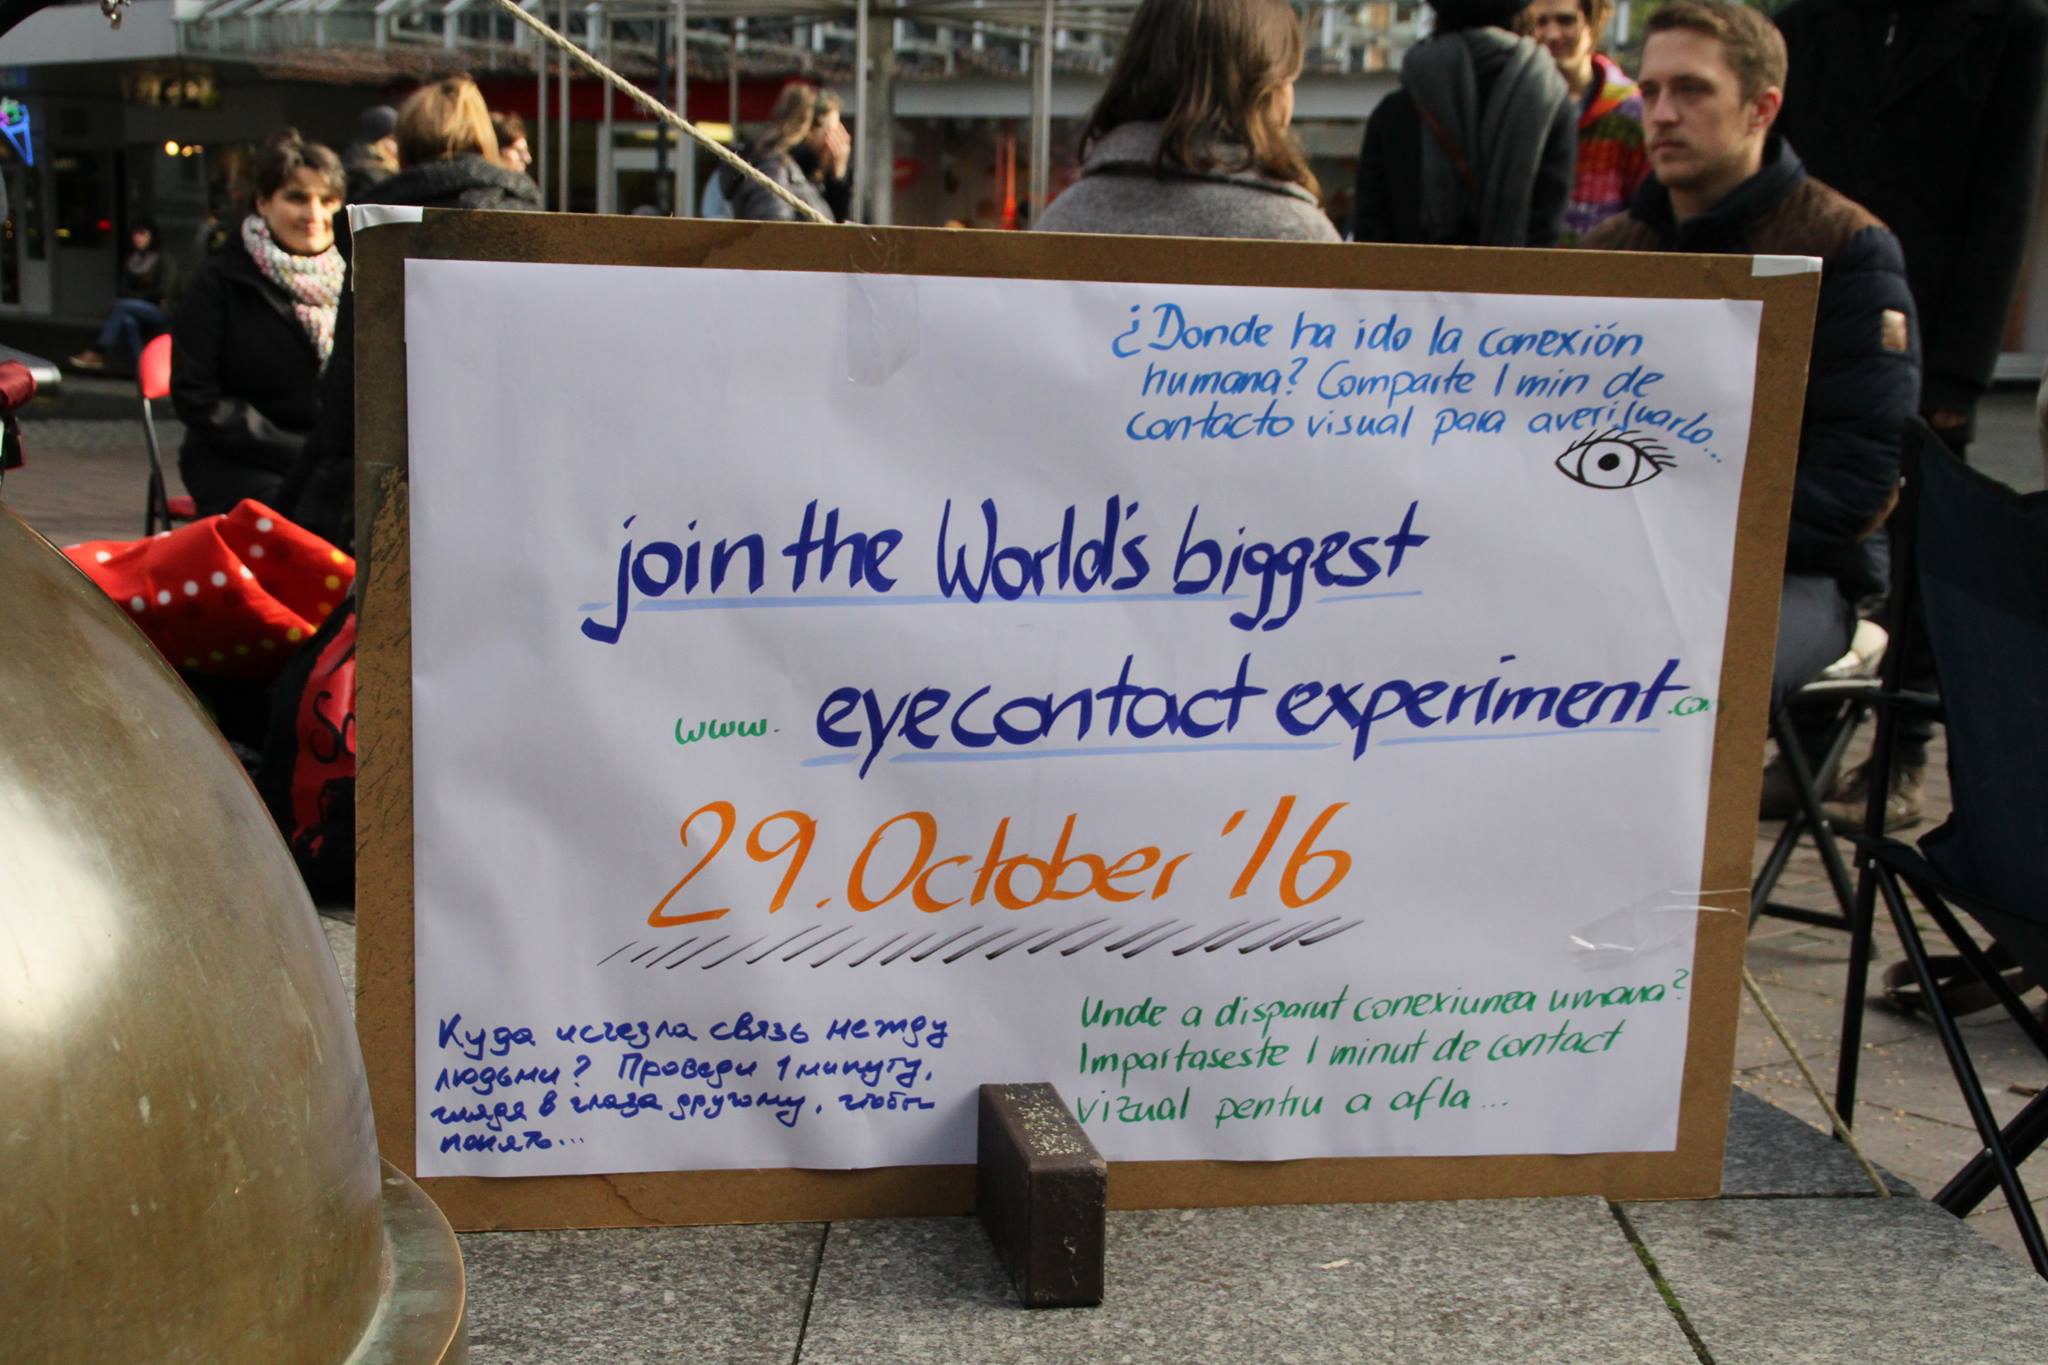 ¿Donde ha ido la conexión
humana? Comparte 1 min de
contacto visual para averiguarlo...
join the World's biggest
www. eyecontact experiment.com
29. October '16
Куда исчезла связь между
людьми? Проведи 1 минуту,
глядя в глаза другому, чтобы
понять...
Unde a disparut conexiunea umana?
Impartaseste 1 minut de contact
vizual pentru a afla...